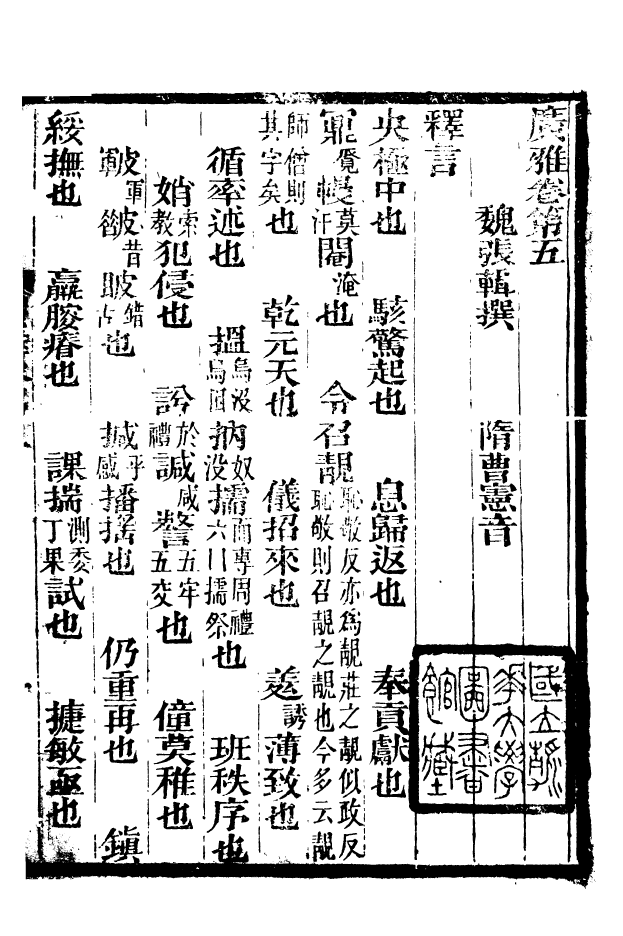 廣雅卷第五
魏張輯撰 隋曹憲音
釋言
央極中也 駭驚起也 息歸返也 奉貢獻也
覺莫汗閹淹也 令召靚恥敬反亦為靚莊之靚似政反恥敬則召靚之靚也今多云靚
師僧則其字矣也 乾元天也 儀招來也 誘薄致也
循率述也 搵烏沒烏困抐奴沒擩而專周禮六曰擩祭也 班秩序也
娋索教犯侵也 訡於禮諴咸謷五牢五交也 僮莫稚也
皸軍皵昔錯也 撼呼感播搖也 仍重再也 鎮
綏撫也 羸䏰瘠也 課揣測委丁果試也 捷敏亟也
國立清華大學圖書館藏